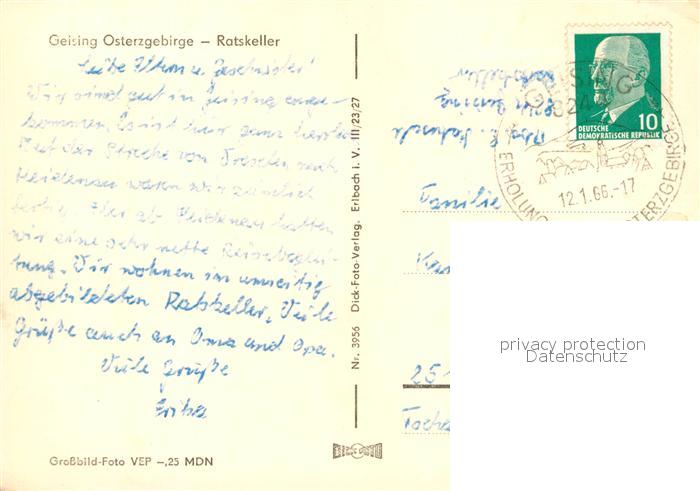 Geising Osterzgebirge – Ratskeller
Liebe Eltern u. Geschwister!
Wir sind gut in Geising ange-
kommen. Es ist hier ganz herrlich
Auf der Strecke von Dresden nach
Heidenau waren wir ziemlich
fertig. Aber ab Heidenau hatten
wir eine sehr nette Reisebeglei-
tung. Wir wohnen im umseitig
abgebildeten Ratskeller. Viele
Grüße auch an Oma und Opa.
Viele Grüße
Großbild-Foto VEP –,25 MDN
Nr. 3956 Dick-Foto-Verlag, Erlbach i. V. III/23/27
DICK FOTO
GEISING
DEUTSCHE
DEMOKRATISCHE REPUBLIK
10
12.1.66.-17
ERHOLUNG
OSTERZGEBIRGE
Geising
Ratskeller
Familie
25
privacy protection
Datenschutz